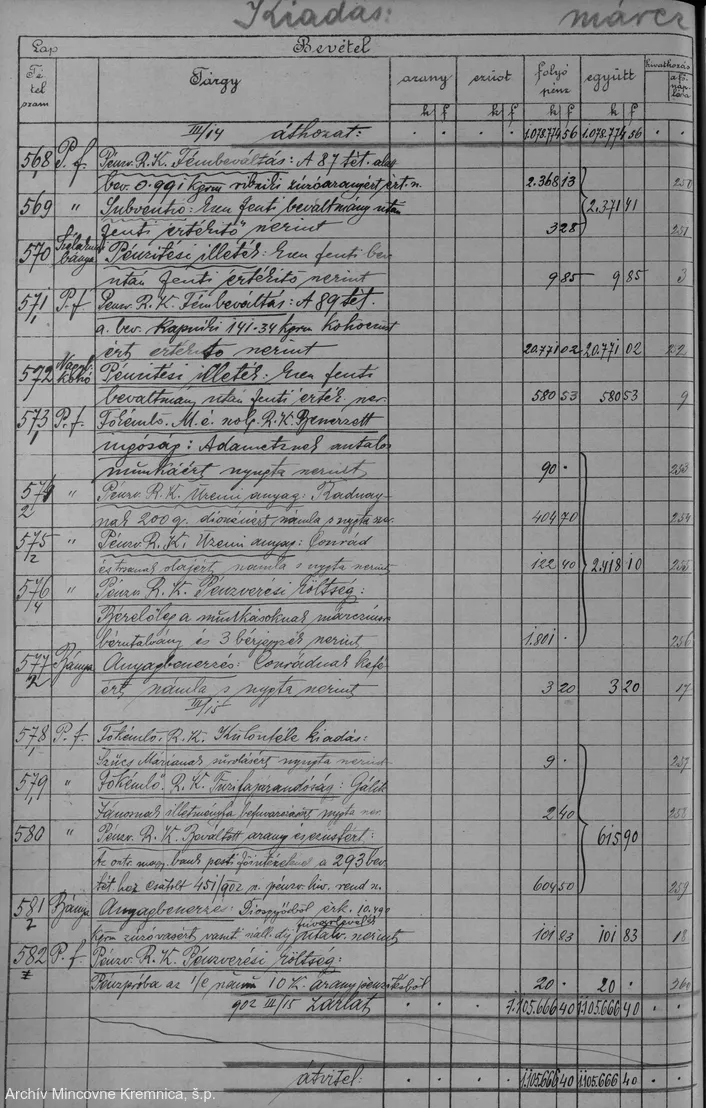 Kiadás: márcz
Lap Bevétel
Tétel szám Tárgy arany ezüst folyó pénz együtt hivatkozás
k f k f k f k f
III/14 áthozat: 1.078.774 56 1.078.774 56
568 P. f. Pénzv. R. K. Fémbeváltás: A 87 tét. alatt
bev. 0.991 kgrm ribniki zúzóaranyért ért. n. 2.368 13 250
569 " Subventio: Ezen fenti beváltmány után 2.371 41
fenti értékítő szerint 3 28 251
570 bánya Pénzítési illeték: Ezen fenti bev.
után fenti értékítő szerint 9 85 9 85 3
571 P. f. Pénzv. R. K. Fémbeváltás: A 89 tét.
a. bev. kapniki 141.34 kgrm kohóezüst
ért értékítő szerint 20.771 02 20.771 02 252
572 Pénzítési illeték: Ezen fenti
beváltmány után fenti érték. sze. 580 53 580 53 9
573 P. f. Főkémlő. M. é. szolg. R. K. Beszerzett
ingóság: Adametznak asztalos
munkáért nyugta szerint 90 . 253
574 " Pénzv. R. K. Üzemi anyag:
2 200 q. számla s nyugta sze. 404 70 254
575 " Pénzv. R. K. Üzemi anyag: Conrád
2 olajért számla s nyugta szerint 122 40 2.418 10 255
576 " Pénzv. R. K. Pénzverési költség:
4 Bérelőleg a munkásoknak márczius
bérutalvány és 3 bérjegyzék szerint 1.801 . 256
577 Bánya Anyagbeszerzés: Conrádnak kefé-
2 ért számla s nyugta szerint 3 20 3 20 17
III/15
578 P. f. Főkémlő. R. K. Különféle kiadás:
Szűcs Máriának súrolásért nyugta szerint 9 . 257
579 " Főkémlő. R. K. Tuzifajárandóság: Gálik
Jánosnak illetményfa befuvarozásért nyugta sze. 2 40 258
580 " Pénzv. R. K. Beváltott arany és ezüstért: 615 90
Az osztr. magy. bank pesti főintézetének a 293 bev.
tét. hez csatolt 451/902 sz. pénzv. hiv. rend sz. 604 50 259
581 Bánya Anyagbeszerzés: Diósgyőrből érk. 10.490
2 kgrm zúzóvasért vasúti száll. díj utalv. szerint 101 83 101 83 18
582 P. f. Pénzv. R. K. Pénzverési költség:
Pénzpróba az 1/e számú 10 K. aranypénzekből 20 . 20 . 260
902 III/15 Zárlat 1.105.666 40 1.105.666 40
átvitel: 1.105.666 40 1.105.666 40
Archív Mincovne Kremnica, š.p.